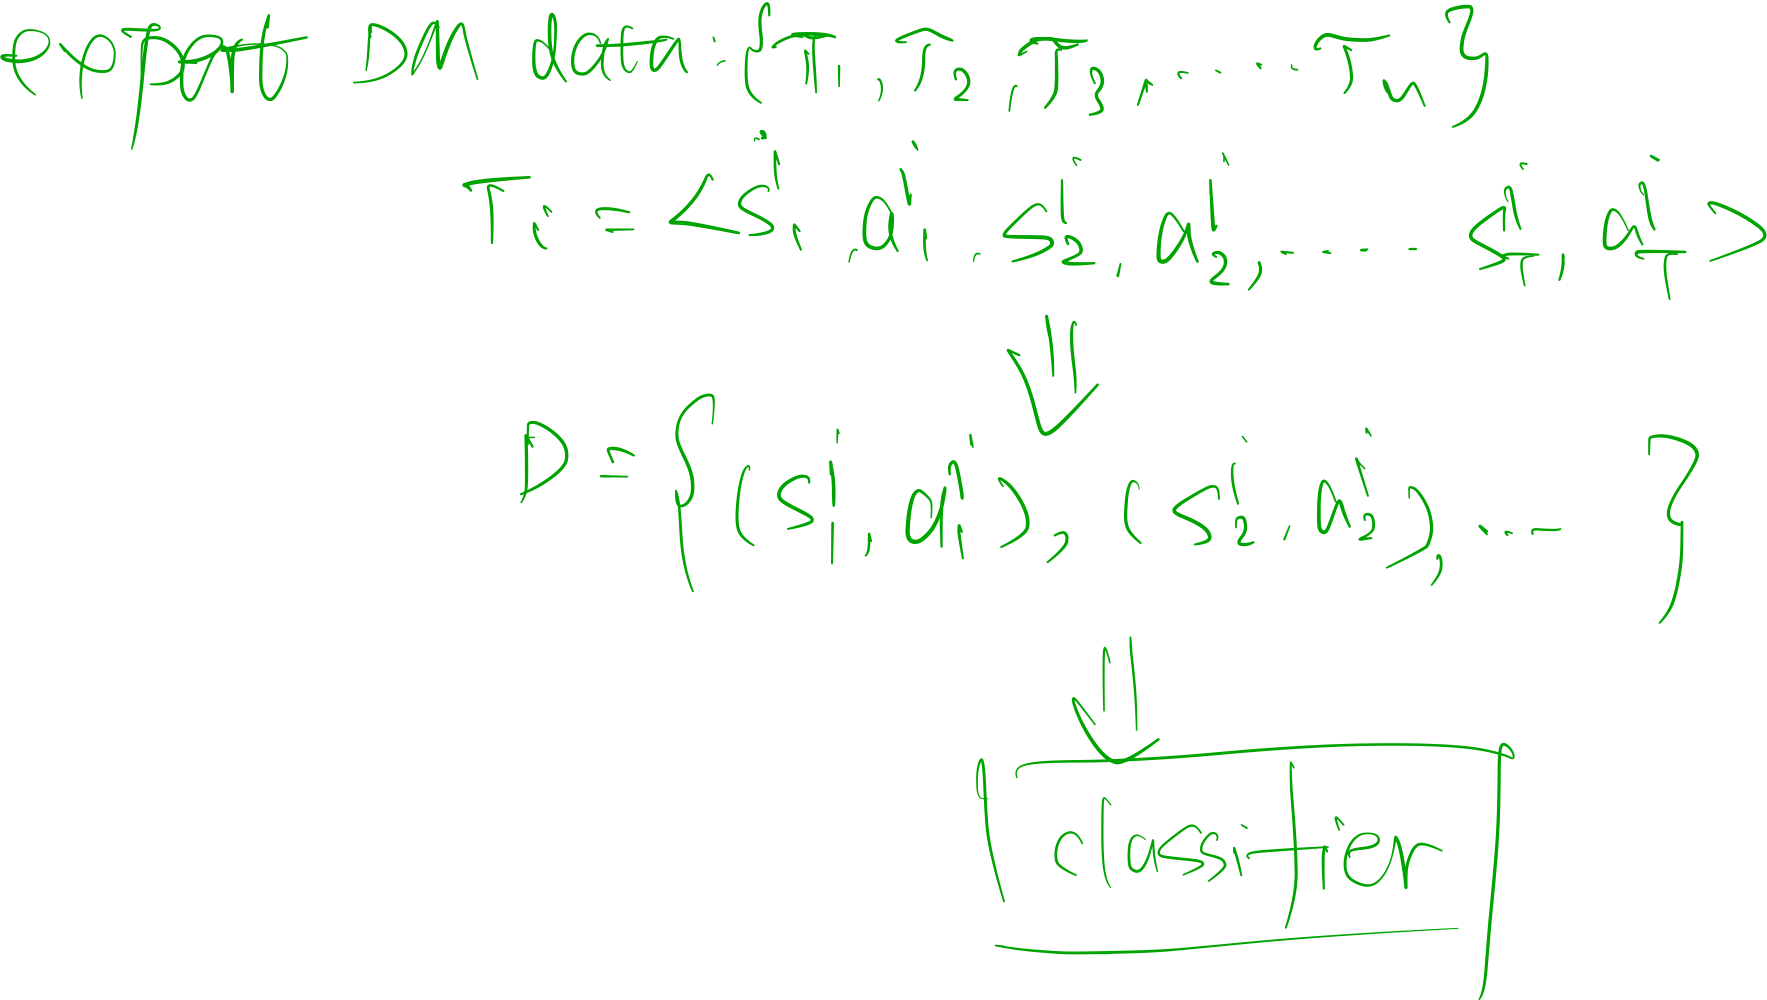 expert DM data: {τ₁, τ₂, τ₃, ..... τₙ}
τᵢ = <s₁ⁱ, a₁ⁱ, s₂ⁱ, a₂ⁱ, ..... s_Tⁱ, a_Tⁱ>
D = {(s₁ⁱ, a₁ⁱ), (s₂ⁱ, a₂ⁱ), ... }
classifier